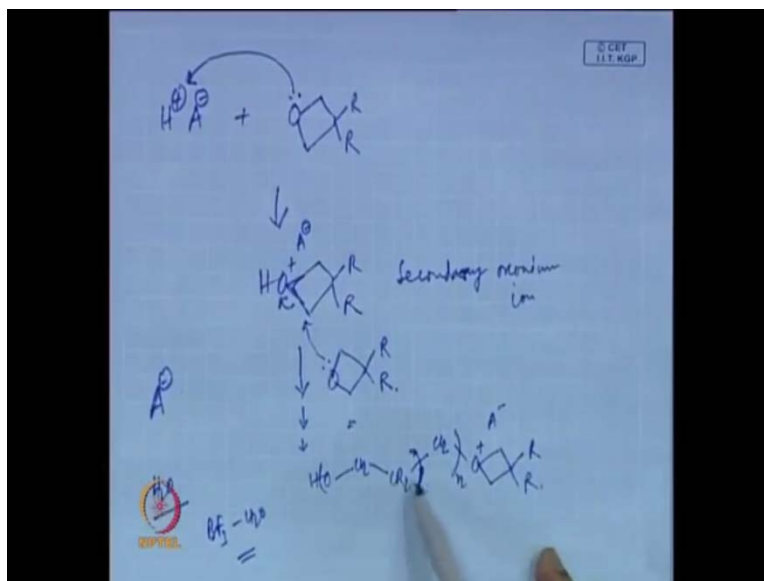 © CET
I.I.T. KGP
H⊕ A⊖ + :O: R
R
A⊖
H O+ R
R
Secondary oxonium
ion
:O R
R.
A⊖
A⁻
H(O — CH2 — CR2 CH2 )n O+ R
R.
H2O
BF3 - H2O
NPTEL